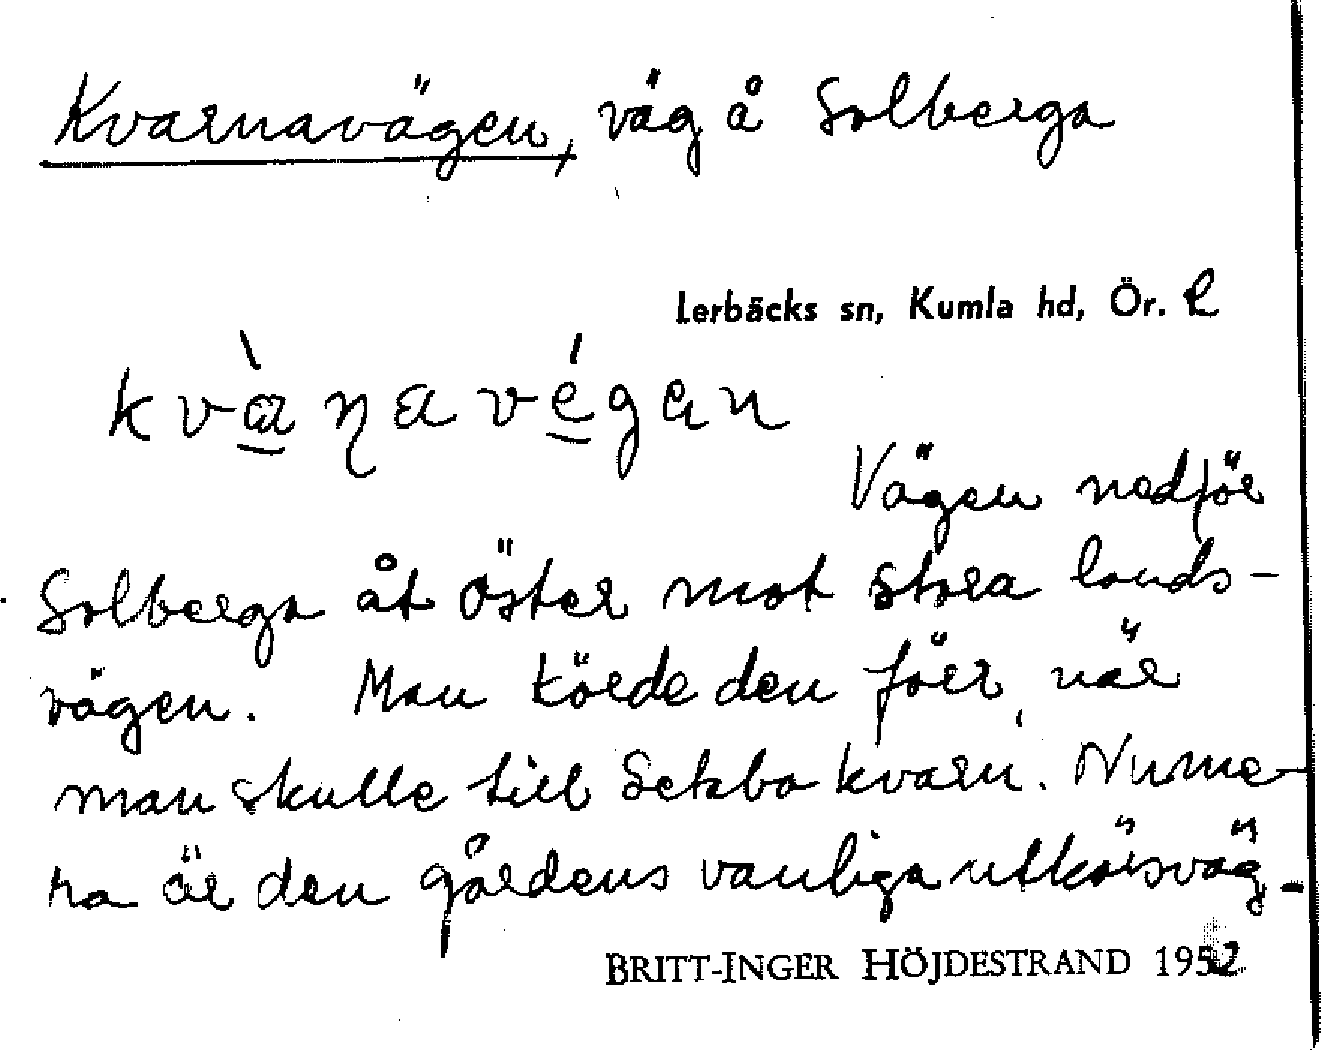 Kvarnavägen, väg å Solberga
Lerbäcks sn, Kumla hd, Ör. l
kvànavégen
Vägen nedför
Solberga åt öster mot stora lands-
vägen. Man körde den förr, när
man skulle till Sekbo kvarn. Nume-
ra är den gårdens vanliga utkörsväg.
BRITT-INGER HÖJDESTRAND 1952